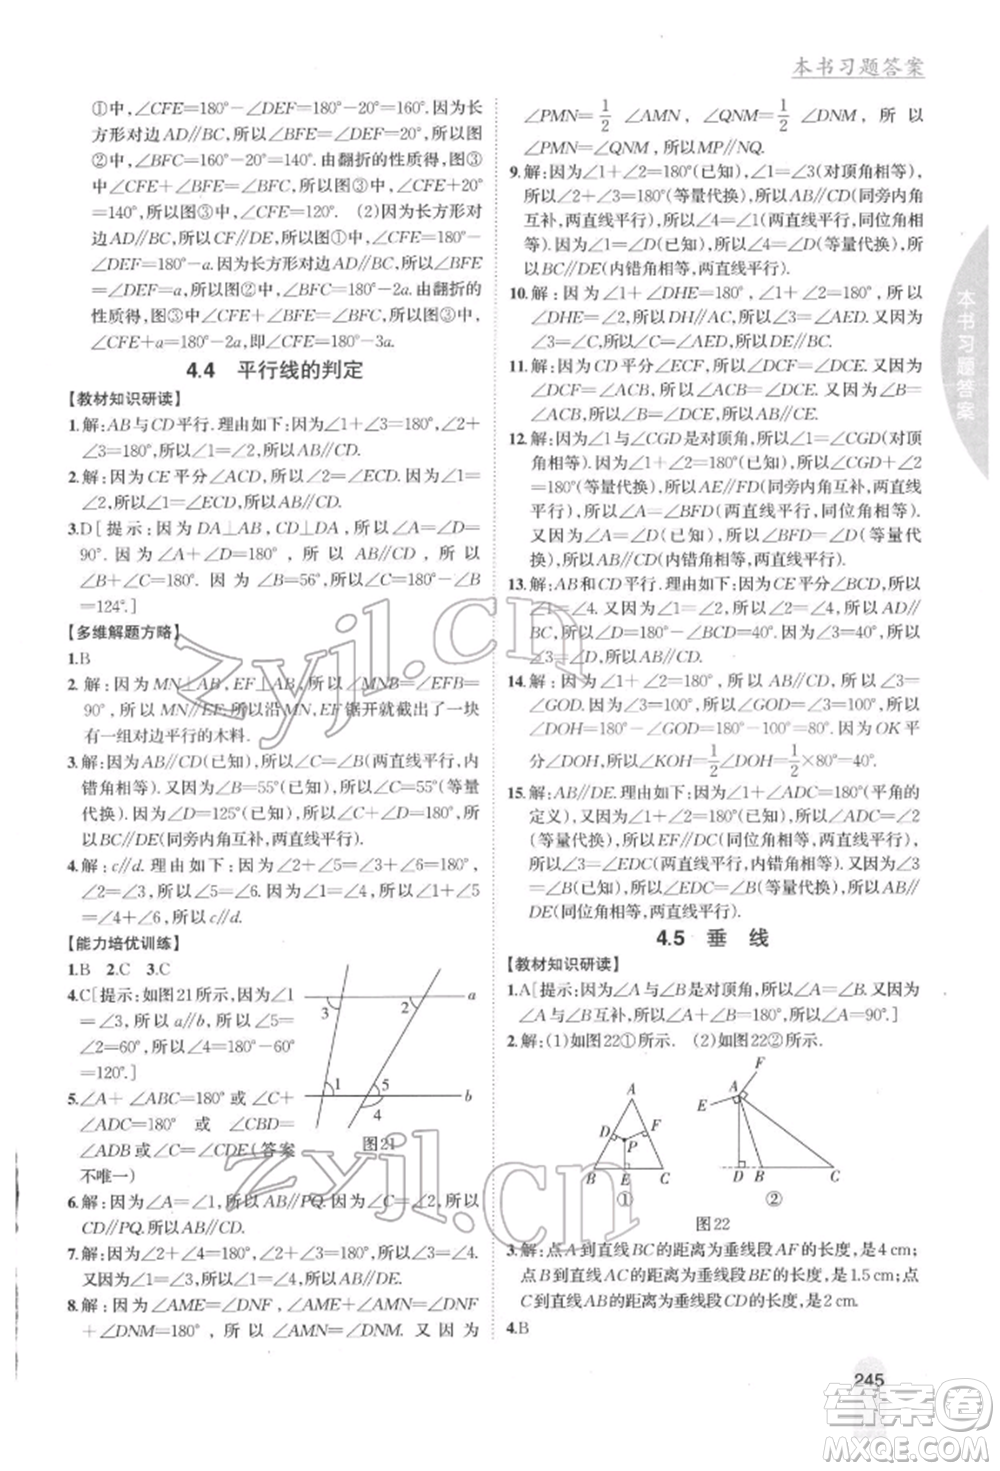 本书习题答案
①中,∠CFE=180°-∠DEF=180°-20°=160°.因为长
方形对边AD∥BC,所以∠BFE=∠DEF=20°,所以图
②中,∠BFC=160°-20°=140°.由翻折的性质得,图③
中,∠CFE+∠BFE=∠BFC,所以图③中,∠CFE+20°
=140°,所以图③中,∠CFE=120°. (2)因为长方形对
边AD∥BC,所以CF∥DE,所以图①中,∠CFE=180°-
∠DEF=180°-a.因为长方形对边AD∥BC,所以∠BFE=
∠DEF=a,所以图②中,∠BFC=180°-2a.由翻折的
性质得,图③中,∠CFE+∠BFE=∠BFC,所以图③中,
∠CFE+a=180°-2a,即∠CFE=180°-3a.
4.4 平行线的判定
【教材知识研读】
1.解:AB与CD平行.理由如下:因为∠1+∠2=180°,∠2
=∠3,所以∠1+∠3=180°,所以AB∥CD.
2.解:因为CE平分∠ACD,所以∠2=∠ECD.因为∠1=
∠2,所以∠1=∠ECD,所以AB∥CD.
3.D[提示:因为DA⊥AB,CD⊥DA,所以∠A=∠D=
90°.因为∠A+∠D=180°,所以AB∥CD,所以
∠B+∠C=180°.因为∠B=56°,所以∠C=180°-∠B
=124°.]
【多维解题方略】
1.B
2.解:因为MN⊥AB,EF⊥AB,所以∠MNB=∠EFB=
90°,所以MN∥EF.所以沿MN,EF锯开就截出了一块
有一组对边平行的木料.
3.解:因为AB∥CD(已知),所以∠B=∠C(两直线平行,内
错角相等).又因为∠B=55°(已知),所以∠C=55°(等量
代换).因为∠D=125°(已知),所以∠C+∠D=180°,所
以BC∥DE(同旁内角互补,两直线平行).
4.解:c∥d.理由如下:因为∠2+∠5=∠3+∠6=180°,
∠2=∠3,所以∠5=∠6.又因为∠4=∠1+∠5,∠1=
∠2,所以∠4=∠2+∠6,所以c∥d.
【能力培优训练】
1.B 2.C 3.C
4.C[提示:如图21所示,因为∠1
=∠3,所以a∥b,所以∠5=
∠2=60°,所以∠4=180°-
∠5=180°-60°=120°.]
5.∠A+∠ABC=180°或∠C+
∠ADC=180°或∠CBD=
∠ADB或∠C=∠CDE(答案
不唯一)
3 2 a 1 5 4 b
图21
6.解:因为∠A=∠1,所以AB∥PQ.因为∠C=∠2,所以
CD∥PQ.所以AB∥CD.
7.解:因为∠2+∠4=180°,∠3+∠4=180°,所以∠2=∠3.
又因为∠1=∠2,所以∠1=∠3,所以AB∥CD.
8.解:因为∠AME=∠DNF,∠AME+∠AMN=∠DNF
+∠DNM=180°,所以∠AMN=∠DNM.又因为
∠PMN=1/2∠AMN,∠QNM=1/2∠DNM,所以
∠PMN=∠QNM,所以MP∥NQ.
9.解:因为∠1+∠2=180°(已知),∠1=∠3(对顶角相等),
所以∠2+∠3=180°(等量代换),所以AB∥CD(同旁内角
互补,两直线平行),所以∠4=∠1(两直线平行,同位角相
等).又因为∠1=∠D(已知),所以∠4=∠D(等量代换),
所以BC∥DE(内错角相等,两直线平行).
10.解:因为∠1+∠DHE=180°,∠1+∠2=180°,所以
∠DHE=∠2,所以DH∥AC,所以∠3=∠AED.又因为
∠3=∠B,所以∠B=∠AED,所以DE∥BC.
11.解:因为CD平分∠ACB,所以∠DCF=∠DCE.又因为
∠DCF=∠ACD,所以∠ACD=∠DCE.又因为
∠ACD=∠BDC,所以∠BDC=∠DCE,所以AB∥CE.
12.解:因为∠1与∠CGD是对顶角,所以∠1=∠CGD(对
顶角相等).又因为∠1+∠2=180°,所以∠CGD+∠2=
180°(等量代换),所以AE∥FD(同旁内角互补,两直线平
行),所以∠A=∠BFD(两直线平行,同位角相等).
又因为∠A=∠D,所以∠BFD=∠D(等量代换),
所以AB∥CD(内错角相等,两直线平行).
13.解:AB和CD平行.理由如下:因为CE平分∠BCD,所
以∠1=∠4.又因为∠1=∠2,所以∠2=∠4,所以AD∥
BC,所以∠D+∠BCD=180°,所以∠D=40°.又因为
∠3=40°,所以∠D=∠3,所以AB∥CD.
14.解:因为∠1+∠2=180°,所以AB∥CD,所以∠3=
∠GOD.又因为∠3=100°,所以∠GOD=∠3=100°,所
以∠DOH=180°-∠GOD=180°-100°=80°.因为OK平
分∠DOH,所以∠KOH=1/2∠DOH=1/2×80°=40°.
15.解:因为∠1+∠2=180°(已知),∠1+∠ADC=180°(平角的
定义),又因为∠1+∠2=180°(已知),所以∠ADC=∠2
(等量代换),所以EF∥DC(同位角相等,两直线平行),
所以∠3=∠EDC(两直线平行,内错角相等).又因为∠3
=∠B(已知),所以∠EDC=∠B(等量代换),所以AB∥
DE(同位角相等,两直线平行).
4.5 垂 线
【教材知识研读】
1.A[提示:因为∠A与∠B是对顶角,所以∠A=∠B.又因
为∠A与∠B互补,所以∠A+∠B=180°,所以∠A=90°.]
2.解:(1)如图22①所示. (2)如图22②所示.
A D F P B E C ①
F A E D B C ②
图22
3.解:点A到直线BC的距离为垂线段AF的长度,是4 cm;
点B到直线AC的距离为垂线段BE的长度,是1.5 cm;点
C到直线AB的距离为垂线段CD的长度,是2 cm.
4.B
本书习题答案
245
zyjl.cn
zyjl.cn
答案圈
MXQE.COM